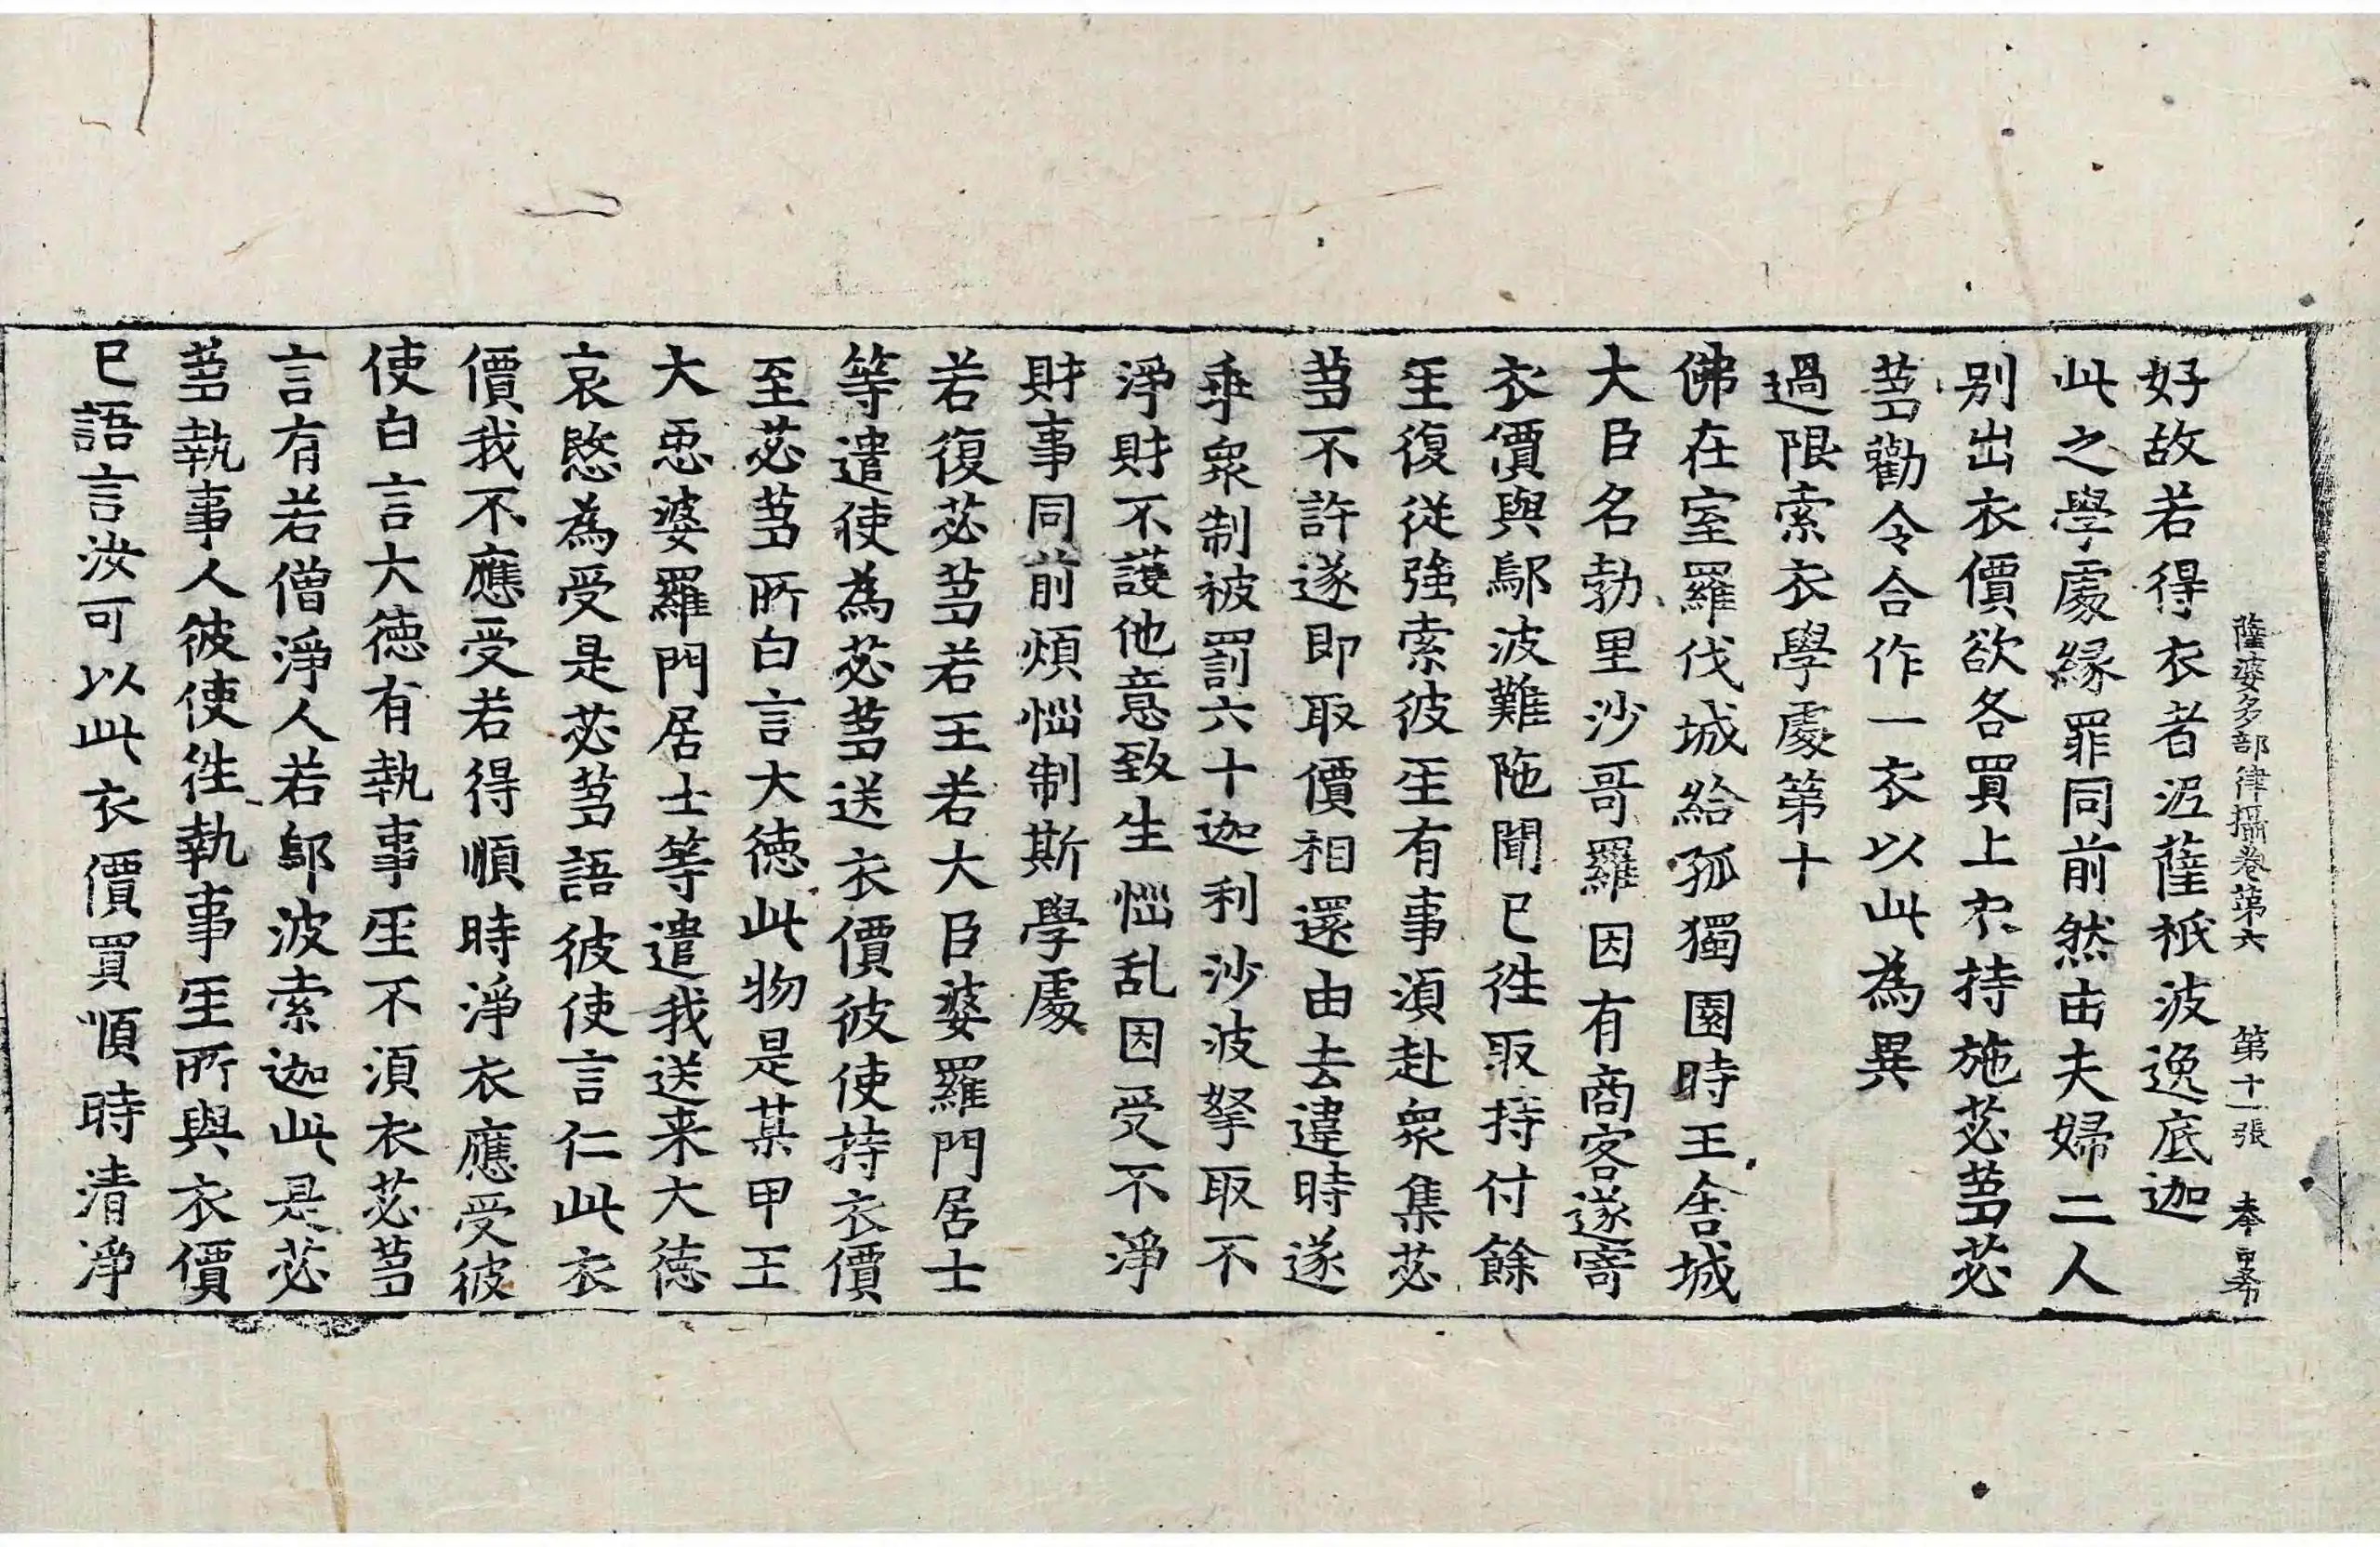 薩婆多部律攝卷第六　第十一張　奉
好故若得衣者泥薩祇波逸底迦
此之學處緣罪同前然由夫婦二人
別出衣價欲各買上衣持施苾芻苾
芻勸令合作一衣以此為異
過限索衣學處第十
佛在室羅伐城給孤獨園時王舍城
大臣名勃里沙哥羅因有商客遂寄
衣價與鄔波難陁聞已徃取持付餘
𤯔復從強索彼𤯔有事湏赴衆集苾
芻不許遂即取價相還由去違時遂
乖衆制被罰六十迦利沙波拏取不
淨財不護他意致生惱乱因受不淨
財事同前煩惱制斯學處
若復苾芻若王若大臣婆羅門居士
等遣使為苾芻送衣價彼使持衣價
至苾芻所白言大德此物是某甲王
大臣婆羅門居士等遣我送来大德
哀愍為受是苾芻語彼使言仁此衣
價我不應受若得順時淨衣應受彼
使白言大德有執事𤯔不湏衣苾芻
言有若僧淨人若鄔波索迦此是苾
芻執事人彼使徃執事𤯔所與衣價
已語言汝可以此衣價買順時清淨